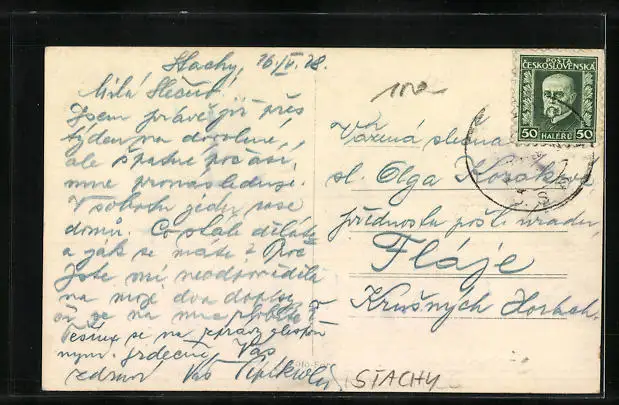 Stachy, 26/V. 28.
Milá Slečno!
Jsem právě již přes
týden na dovolené,
ale špatné počasí
mne pronásleduje.
V sobotu jedu zase
domů. Co stále děláte
a jak se máte? Proč
jste mi neodpověděla
na moje dva dopisy
se na mne zlobíte?
Těším se na zprávu
srdečně Vás
zdraví Váš
POSTA
ČESKOSLOVENSKÁ
50 HALÉŘŮ 50
Vážená slečna
sl. Olga
přednosta pošt. úřadu,
Fláje
Krušných Horách.
STACHY